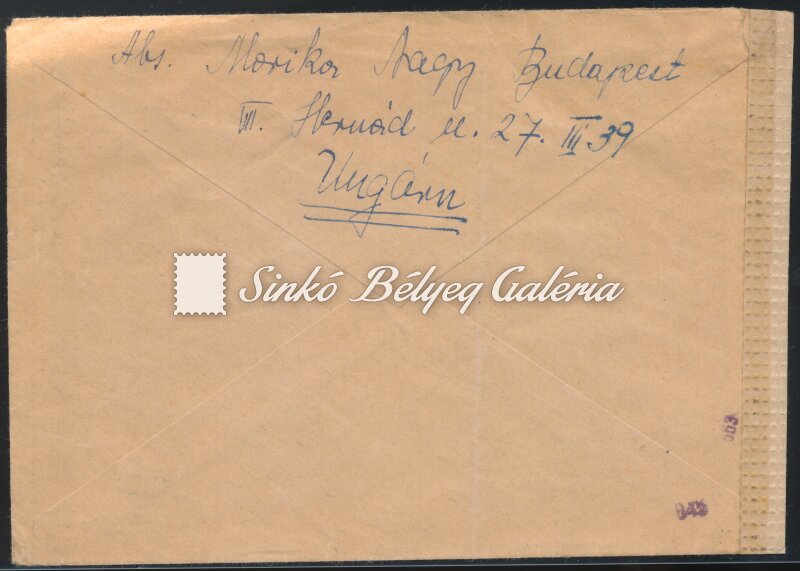 Abs. Marika Nagy Budapest
VII. Hernád u. 27. III 39
Ungárn
Sinkó Bélyeg Galéria
663
845